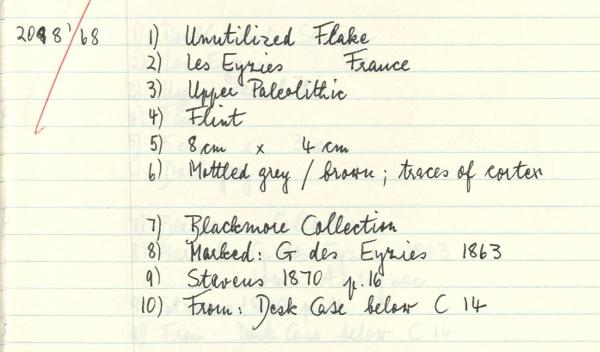 2018'/68 1) Unutilized Flake
2) Les Eyzies France
3) Upper Paleolithic
4) Flint
5) 8 cm x 4 cm
6) Mottled grey / brown ; traces of cortex
7) Blackmore Collection
8) Marked: G des Eyzies 1863
9) Stevens 1870 p.16
10) From: Desk Case below C 14